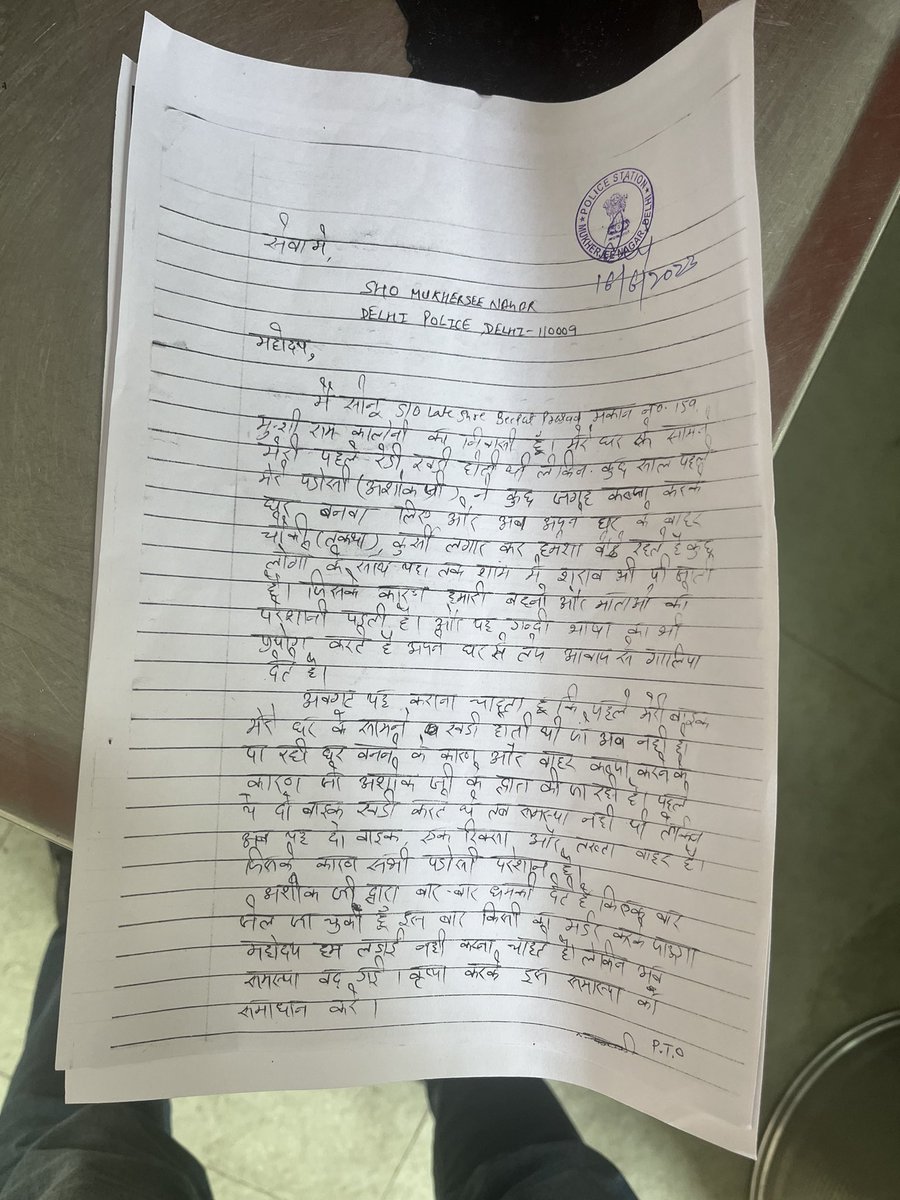 POLICE STATION
MUKHERJEE NAGAR, DELHI
सेवा मे,
18/6/2023
SHO MUKHERJEE NAGAR
DELHI POLICE DELHI-110009
महोदय,
मै सोनू S/O Late Shre मकान न0. 159,
मुन्शी राम कालोनी का निवासी हूँ। मेरे घर के सामने
मेरी पहले रेडी खडी होती थी लेकिन कुछ साल पहले
मेरे पडोसी (अशोक जी) ने कुछ जगह कब्जा करके
घर बनवा लिए और अब अपने घर के बाहर
चौकी (तकथा), कुर्सी लगार कर हमेशा बैठे रहते है कुछ
लोगो के साथ यहा तक शाम मे शराब भी पी जाती
है। जिसके कारण हमारी बहनो और माताओ को
परेशानी पडती है। और यह गन्दी भाषा का भी
प्रयोग करते है अपने घर से तेज आवाज से गालिया
देते है।
अवगट यह कराना चाहता हूँ कि पहले मेरी बाइक
मेरे घर के सामने खडी होती थी जो अब नही हो
पा रही घर बनने के कारण और बाहर कब्जा करने के
कारण जो अशोक जी के द्वारा की जा रही है। पहले
ये दो बाइक खडी करते थे तब समस्या नही थी लेकिन
अब यह दो बाइक, एक रिक्सा और तख्ता बाहर है।
जिसके कारण सभी पडोसी परेशान है।
अशोक जी द्वारा बार-बार धमकी देते है कि एक बार
जेल जा चुका हूँ इस बार किसी का मर्डर करके जाऊगा
महोदय हम लडाई नही करना चाहते है। लेकिन अब
समस्या बढ गई। कृप्या करके इस समस्या का
समाधान करे।
P.T.O